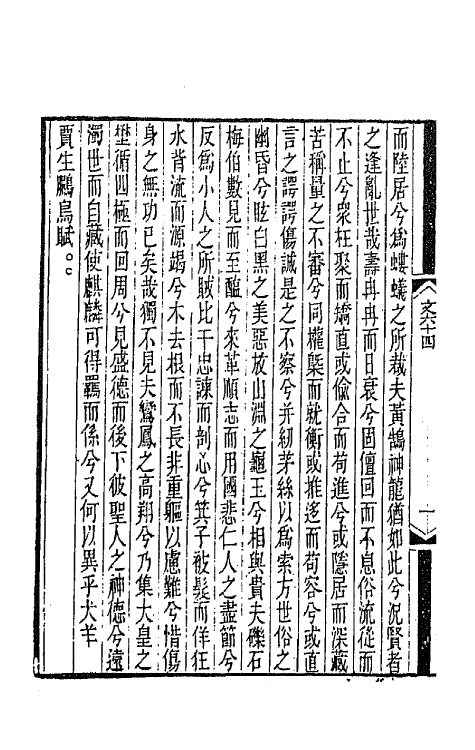 而陸居兮爲螻蟻之所裁夫黃鵠神龍猶如此兮況賢者
之逢亂世哉壽冉冉而日衰兮固儃回而不息俗流從而
不止兮衆枉聚而矯直或偸合而苟進兮或隱居而深藏
苦稱量之不審兮同權槩而就衡或推迻而苟容兮或直
言之諤諤傷誠是之不察兮并紉茅絲以爲索方世俗之
幽昏兮眩白黑之美惡放山淵之龜玉兮相與貴夫礫石
梅伯數見而至醢兮來革順志而用國悲仁人之盡節兮
反爲小人之所賊比干忠諫而剖心兮箕子被髮而佯狂
水背流而源竭兮木去根而不長非重軀以慮難兮惜傷
身之無功已矣哉獨不見夫鸞鳳之高翔兮乃集大皇之
壄循四極而回周兮見盛德而後下彼聖人之神德兮遠
濁世而自藏使麒麟可得羈而係兮又何以異乎犬羊
賈生鵩鳥賦。。
文六十四
一